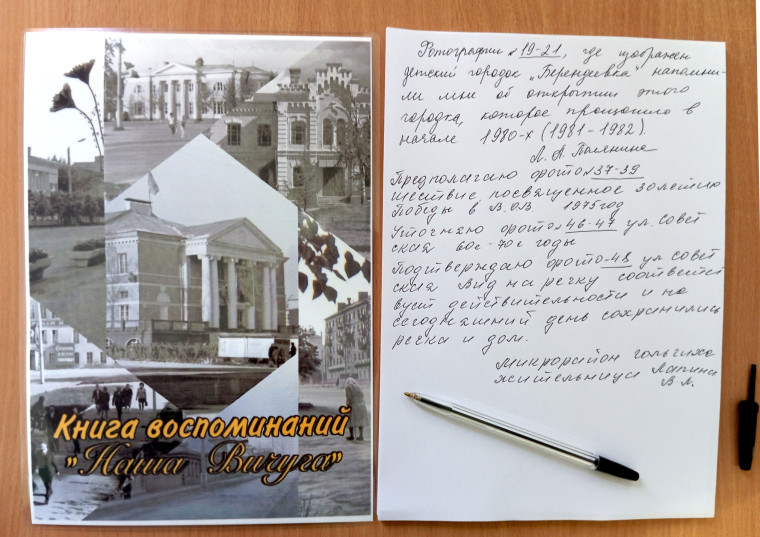 Книга воспоминаний
"Наша Вичуга"
Фотографии № 19-21, где изображен
детский городок „Берендеевка" напомни-
ли мне об открытии этого
городка, которое прошло в
начале 1980-х (1981-1982).
Л. А.
Предполагаю фото № 37-39
шествие посвященное 30летию
Победы в В.О.В. 1975год
Уточняю фото № 46-47 ул. Совет
ская 60е-70е годы
Подтверждаю фото № 48 ул Совет
ская Вид на речку соответст
вует действительности и на
сегодняшний день сохранились
речка и дом.
Микрорайон гольчиха
жительница Лапина
В.А.